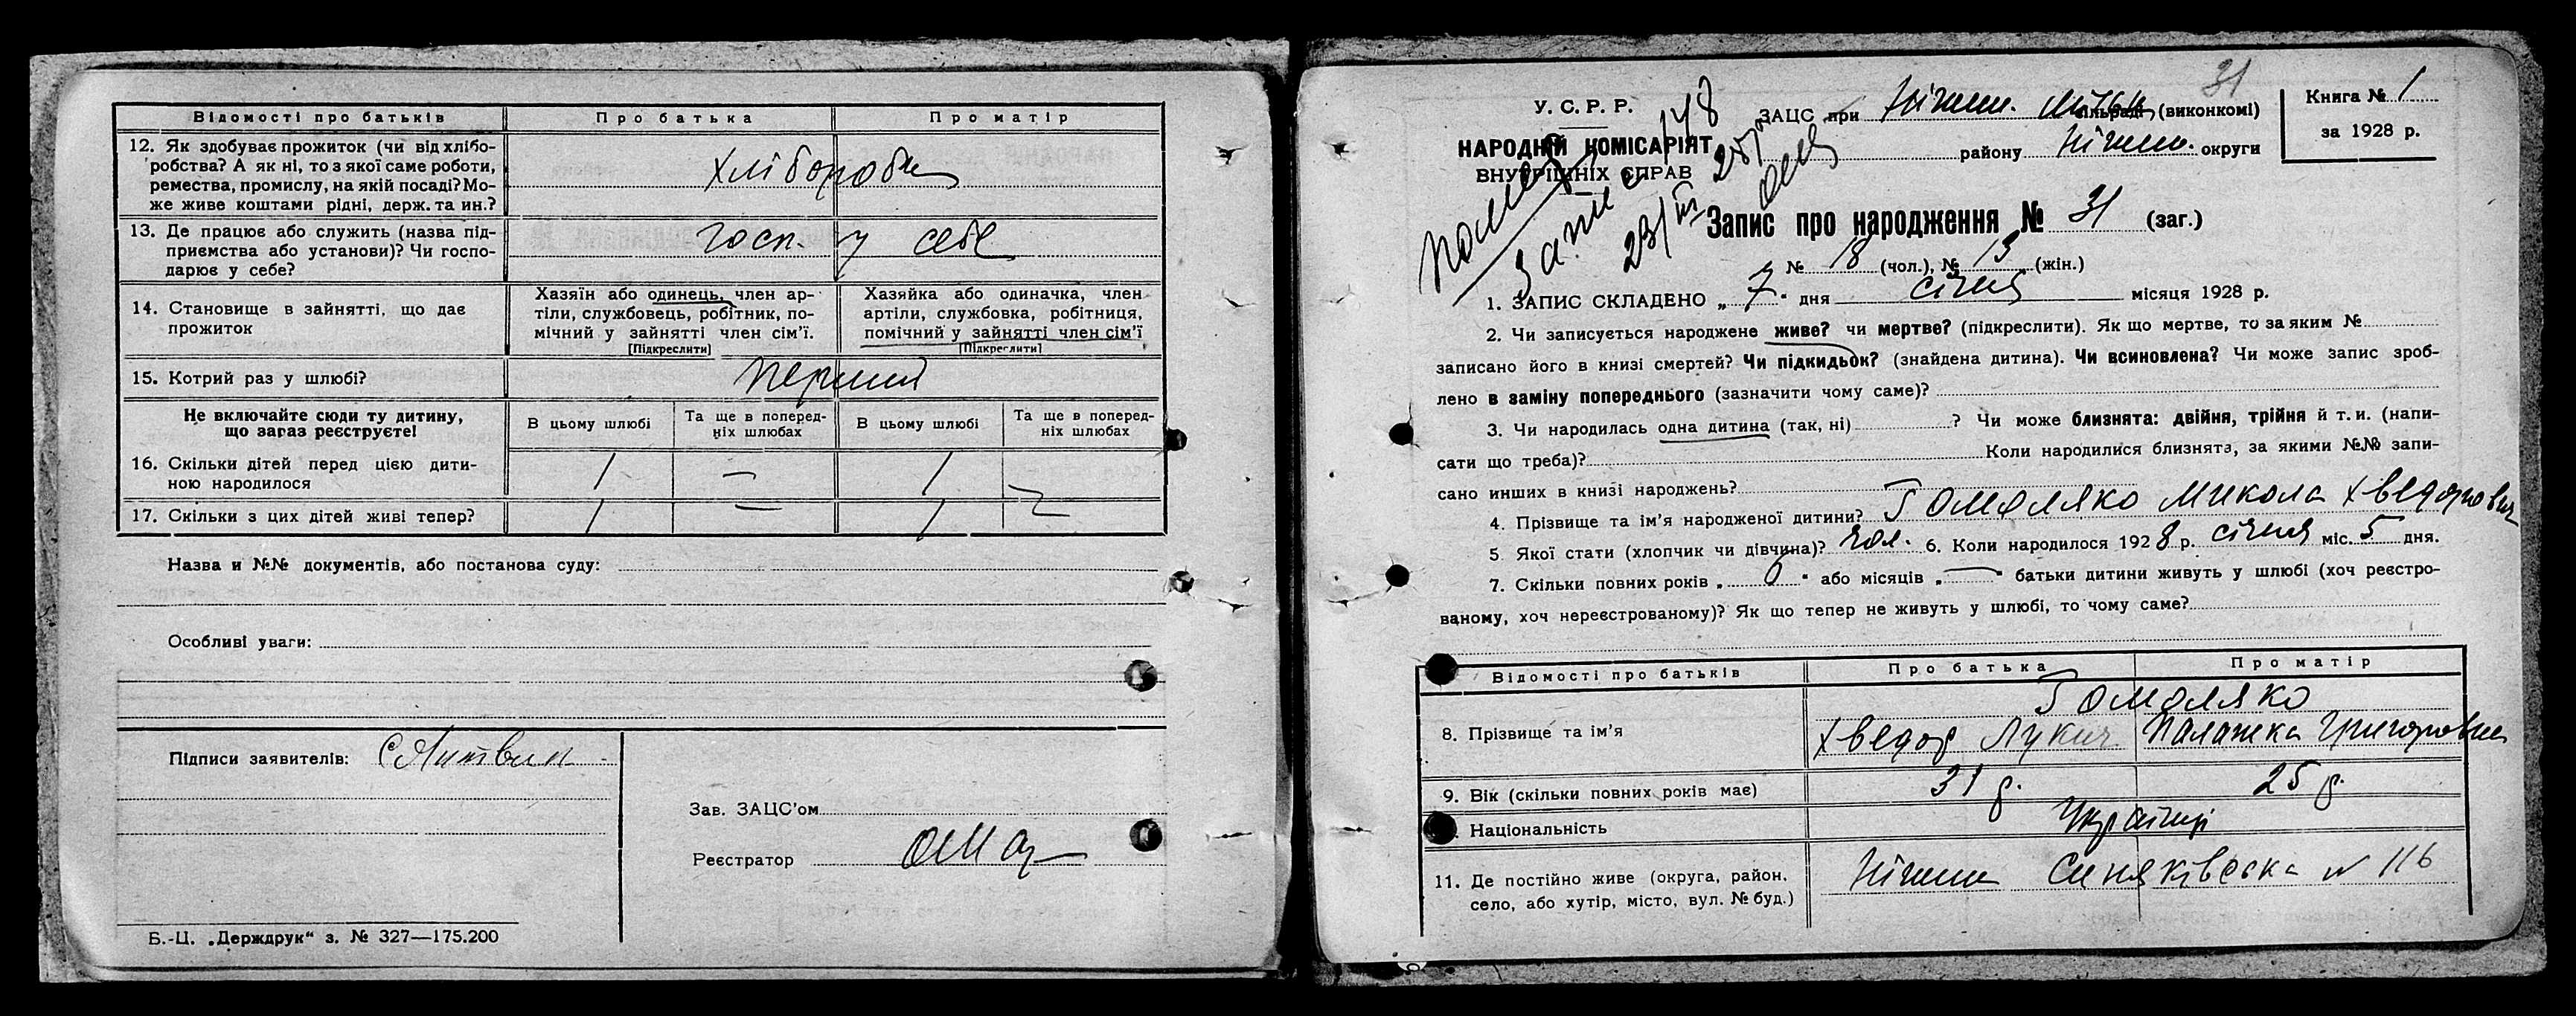 Відомості про батьків Про батька Про матір
12. Як здобуває прожиток (чи від хлібо-
робства? А як ні, то з якої саме роботи,
ремества, промислу, на якій посаді? Мо-
же живе коштами рідні, держ. та ин.?
Хлібороби
13. Де працює або служить (назва під-
приємства або установи)? Чи госпо-
дарює у себе?
госп. у себе
14. Становище в зайнятті, що дає
прожиток
Хазяїн або одинець, член ар-
тіли, службовець, робітник, по-
мічний у зайнятті член сім'ї.
[Підкреслити]
Хазяйка або одиначка, член
артіли, службовка, робітниця,
помічний у зайнятті член сім'ї
[Підкреслити]
15. Котрий раз у шлюбі? перший
Не включайте сюди ту дитину,
що зараз реєструєте!
В цьому шлюбі
Та ще в поперед-
ніх шлюбах
В цьому шлюбі
Та ще в поперед-
ніх шлюбах
16. Скільки дітей перед цією дити-
ною народилося
1 — 1 —
17. Скільки з цих дітей живі тепер? 1 — 1 —
Назва и №№ документів, або постанова суду:
Особливі уваги:
Підписи заявителів: С Литвин
Зав. ЗАЦС'ом
Реєстратор
Б.-Ц. „Держдрук" з. № 327—175.200
31
У. С. Р. Р.
НАРОДНІЙ КОМІСАРІЯТ
ВНУТРІШНІХ СПРАВ
ЗАЦС при Ніжин. сільраді (виконкомі)
району Ніжин. округи
Книга № 1
за 1928 р.
148
23/III
Запис про народження № 31 (заг.)
№ 18 (чол.), № 13 (жін.)
1. ЗАПИС СКЛАДЕНО „ 7 " дня січня місяця 1928 р.
2. Чи записується народжене живе? чи мертве? (підкреслити). Як що мертве, то за яким №
записано його в книзі смертей? Чи підкидьок? (знайдена дитина). Чи всиновлена? Чи може запис зроб-
лено в заміну попереднього (зазначити чому саме)?
3. Чи народилась одна дитина (так, ні) ? Чи може близнята: двійня, трійня й т. и. (напи-
сати що треба)? Коли народилися близнята, за якими №№ запи-
сано инших в книзі народжень?
4. Прізвище та ім'я народженої дитини? Гомоляко Микола Хведорович
5. Якої стати (хлопчик чи дівчина)? чол. 6. Коли народилося 1928 р. січня міс. 5 дня.
7. Скільки повних років „ 6 " або місяців „ — " батьки дитини живуть у шлюбі (хоч реєстро-
ваному, хоч нереєстрованому)? Як що тепер не живуть у шлюбі, то чому саме?
Відомості про батьків Про батька Про матір
Гомоляко
8. Прізвище та ім'я Хведор Лукич Палажка Григоровна
9. Вік (скільки повних років має) 31 р. 25 р.
Національність Українці
11. Де постійно живе (округа, район,
село, або хутір, місто, вул. № буд.)
Ніжин Синяківська № 116